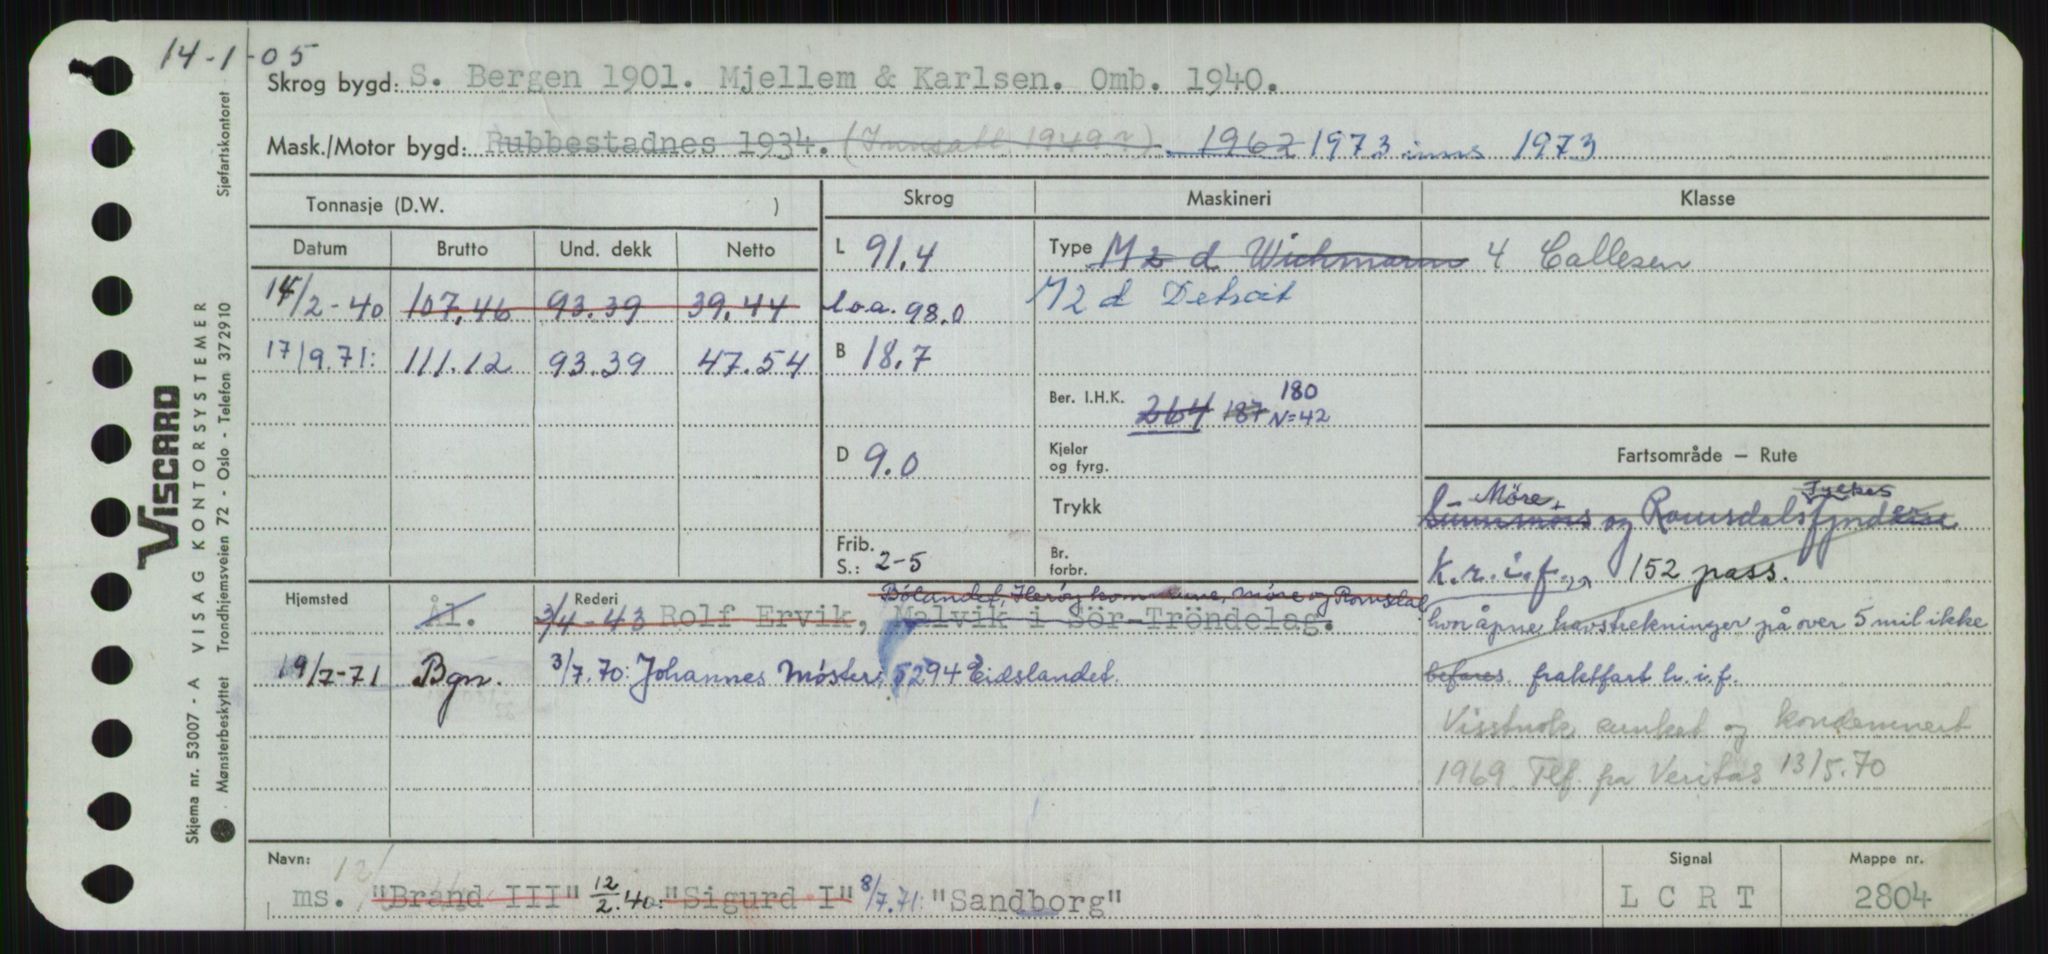 14-1-05
Skrog bygd: S. Bergen 1901. Mjellem & Karlsen. Omb. 1940.
Mask./Motor bygd: Rubbestadnes 1934. (Innsatt 1949?) 1962 1973 inns 1973
Tonnasje (D.W. )
Skrog Maskineri Klasse
Datum Brutto Und. dekk Netto
L 91.4 Type M 2 d Wichmann 4 Callesen
14/2-40 107,46 93.39 39,44 l.o.a. 98.0 M2 d Detroit
17/9.71: 111.12 93.39 47.54 B 18.7
Ber. I.H.K. 264 187 180 N=42
D 9.0 Kjeler og fyrg.
Fartsområde — Rute
Trykk
Møre Fylkes
Sunnmørs og Romsdalsfjordene
Frib. S.: 2-5 Br. forbr.
k.r.i.f. 152 pass.
Hjemsted Rederi Bølandet, Herøy kommune, Møre og Romsdal
Ål. 3/4-43 Rolf Ervik, Malvik i Sör-Tröndelag.
hvor åpne havstrekninger på over 5 mil ikke
19/7-71 Bgn. 3/7.70: Johannes Møster, 5294 Eidslandet.
befares. fraktfart k.i.f.
Visstnok senket og kondemnert
1969. Tlf. fra Veritas 13/5.70
Navn: 12/
ms. "Brand III" 12/2.40: "Sigurd I" 8/7.71: "Sandborg"
Signal
L C R T
Mappe nr.
2804
VISCARD
Skjema nr. 53007 - A VISAG KONTORSYSTEMER
Mønsterbeskyttet Trondhjemsveien 72 - Oslo - Telefon 372910
Sjøfartskontoret